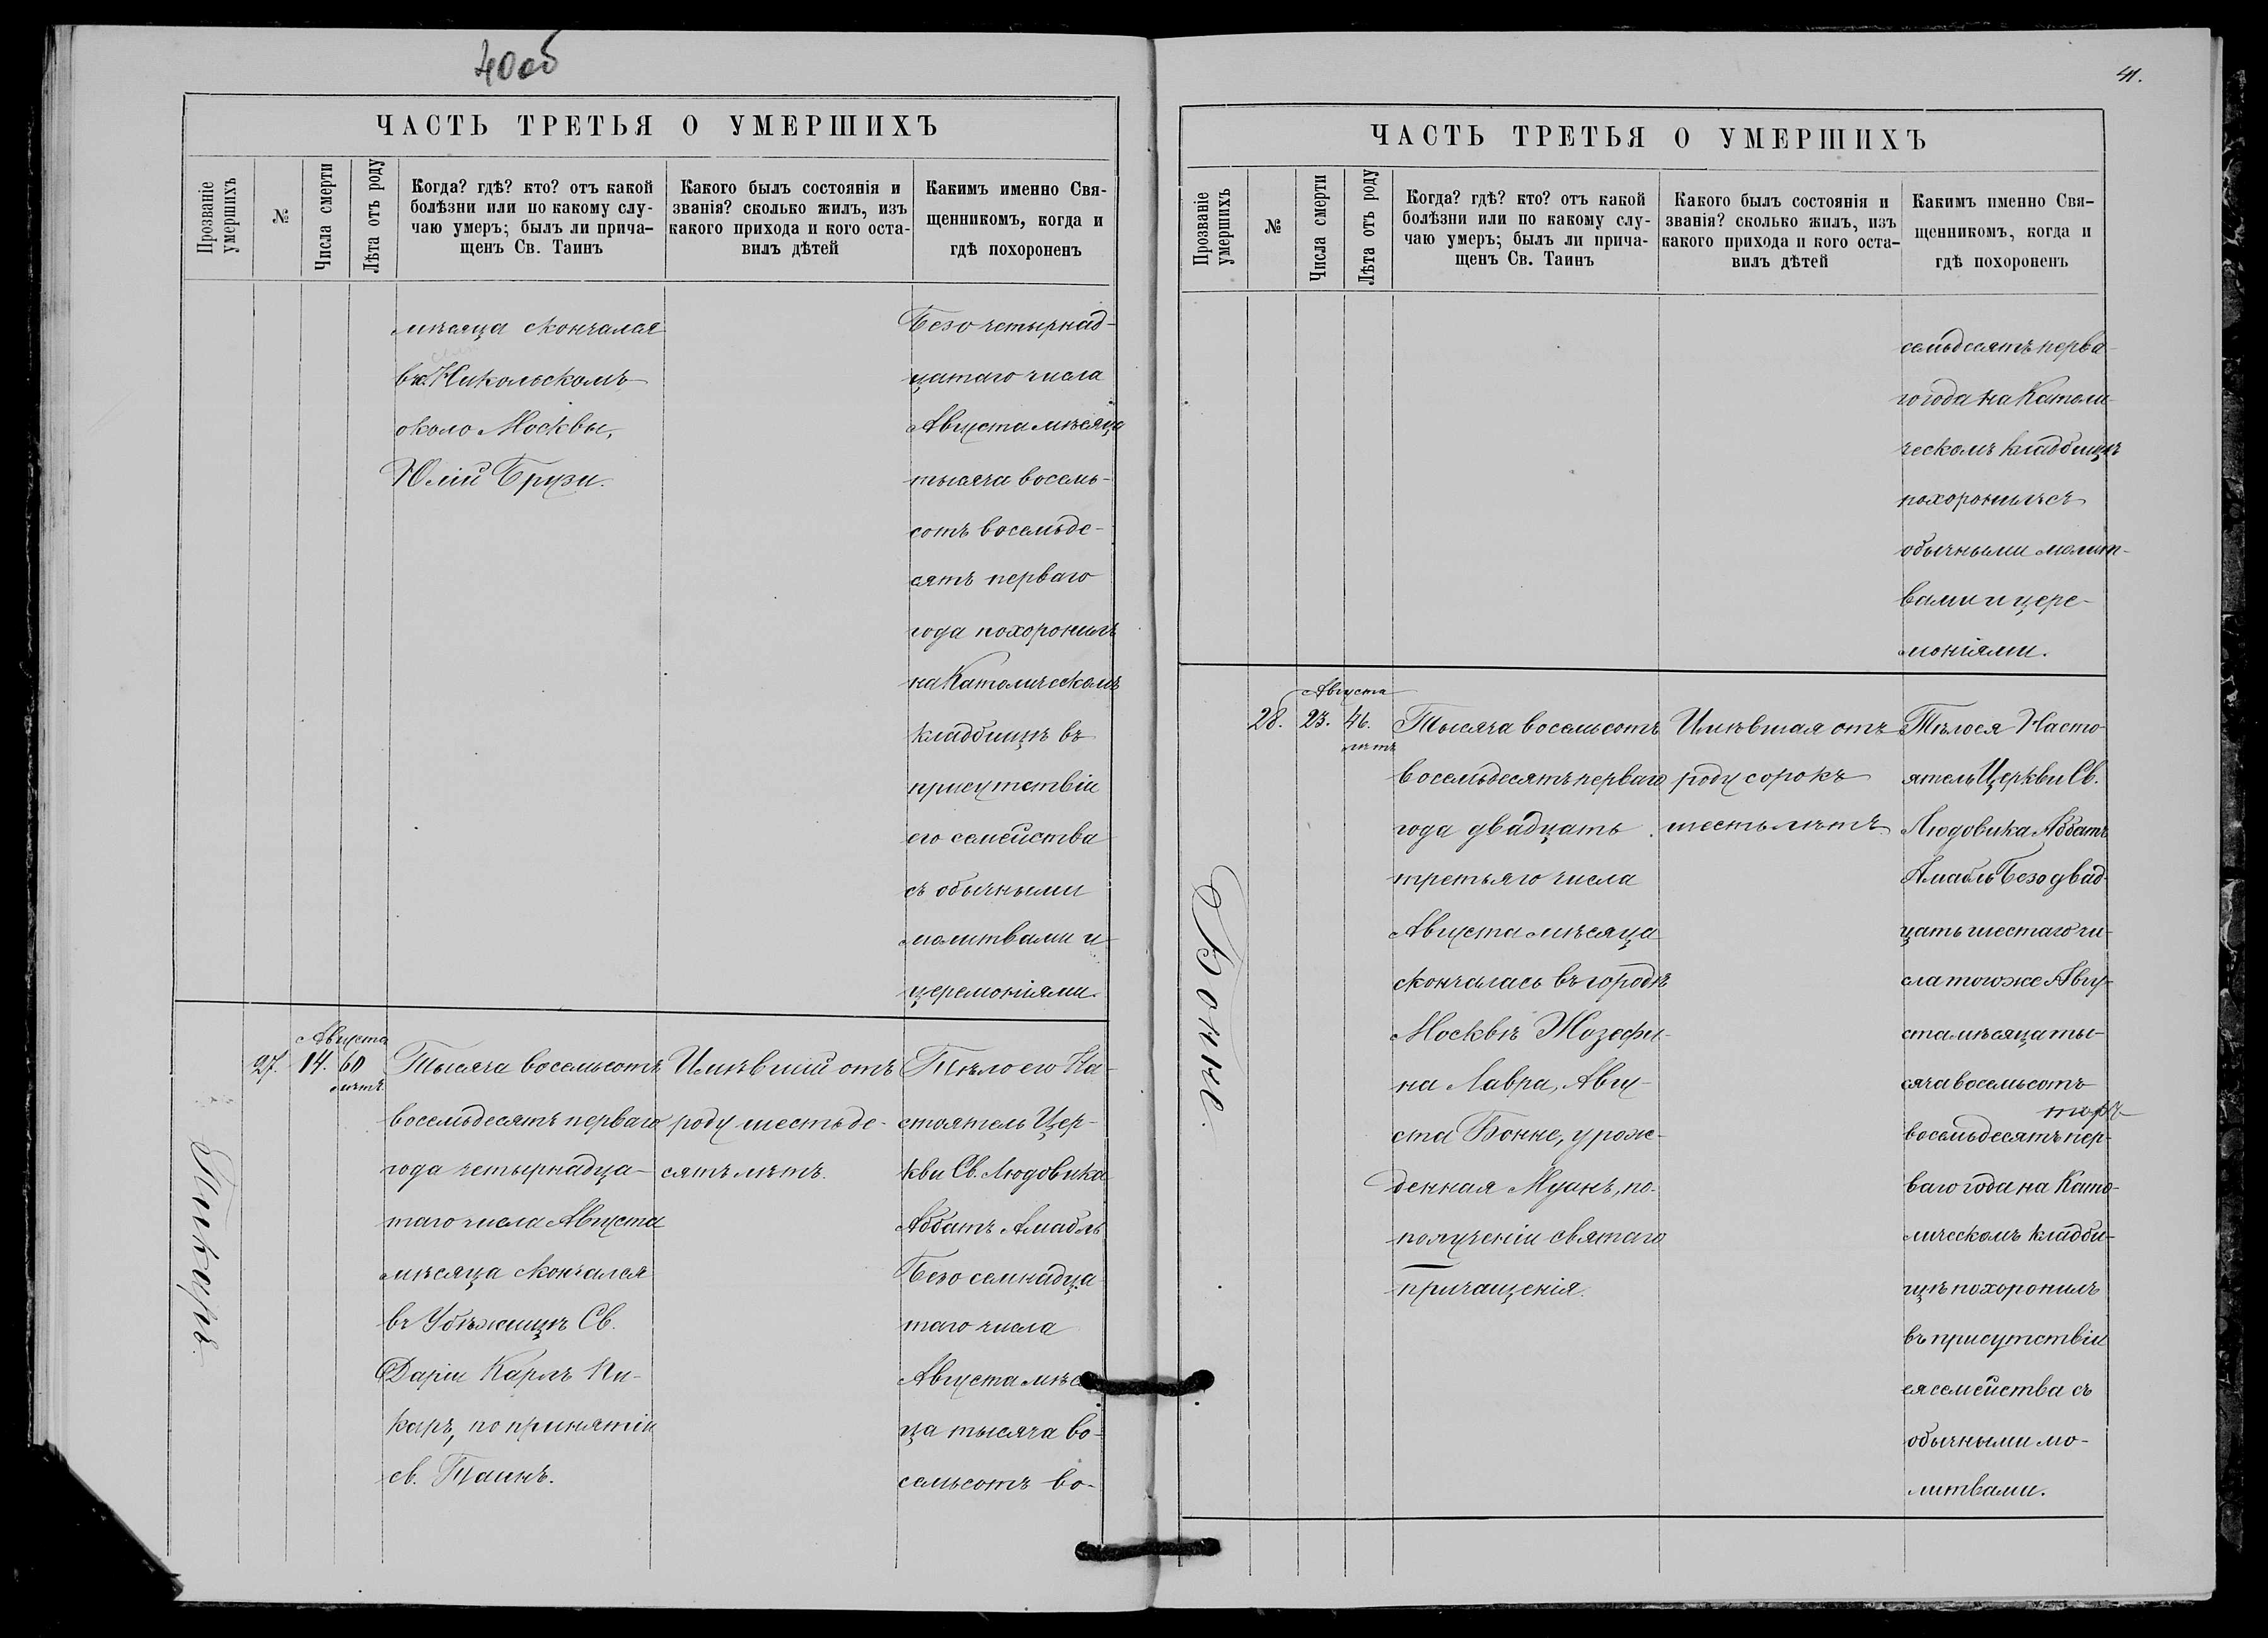 40об
ЧАСТЬ ТРЕТЬЯ О УМЕРШИХЪ
Прозваніе
умершихъ
№
Числа смерти
Лѣта отъ роду
Когда? гдѣ? кто? отъ какой
болѣзни или по какому слу-
чаю умеръ; былъ ли прича-
щенъ Св. Таинъ
Какого былъ состоянія и
званія? сколько жилъ, изъ
какого прихода и кого оста-
вилъ дѣтей
Какимъ именно Свя-
щенникомъ, когда и
гдѣ похороненъ
мѣсяца скончался
въ с. Никольскомъ
около Москвы,
Юлій Брузи.
Безо четырнад-
цатаго числа
Августа мѣсяца
тысяча восемь-
сотъ восемьде-
сятъ перваго
года похоронилъ
на Католическомъ
кладбищѣ въ
присутствіи
его семейства
съ обычными
молитвами и
церемоніями.
Пикаръ.
27.
Августа
14.
60
лѣтъ
Тысяча восемьсотъ
восемьдесятъ перваго
года четырнадца-
таго числа Августа
мѣсяца скончался
въ Убѣжищѣ Св.
Даріи Карлъ Пи-
каръ, по принятіи
св. Таинъ.
Имѣвшій отъ
роду шестьде-
сятъ лѣтъ.
Тѣло его На-
стоятель Цер-
кви Св. Людовика
Аббатъ Амабль
Безо семнадца-
таго числа
Августа мѣся-
ца тысяча во-
семьсотъ во-
41.
ЧАСТЬ ТРЕТЬЯ О УМЕРШИХЪ
Прозваніе
умершихъ
№
Числа смерти
Лѣта отъ роду
Когда? гдѣ? кто? отъ какой
болѣзни или по какому слу-
чаю умеръ; былъ ли прича-
щенъ Св. Таинъ
Какого былъ состоянія и
званія? сколько жилъ, изъ
какого прихода и кого оста-
вилъ дѣтей
Какимъ именно Свя-
щенникомъ, когда и
гдѣ похороненъ
семьдесятъ перва-
го года на Католи-
ческомъ кладбищѣ
похоронилъ съ
обычными молит-
вами и цере-
моніями.
Бонне.
28.
Августа
23.
46.
лѣтъ
Тысяча восемьсотъ
восемьдесятъ перваго
года двадцать
третьяго числа
Августа мѣсяца
скончалась въ городѣ
Москвѣ Жозефи-
на Лавра, Авгу-
ста Бонне, урож-
денная Муанъ, по
полученіи святаго
причащенія.
Имѣвшая отъ
роду сорокъ
шесть лѣтъ.
Тѣло ея Насто-
ятель Церкви Св.
Людовика Аббатъ
Амабль Безо двад-
цать шестаго чи-
сла того же Авгу-
ста мѣсяца ты-
сяча восемьсотъ
восемьдесятъ пер-
ваго года на Като-
лическомъ кладби-
щѣ похоронилъ
въ присутствіи
ея семейства съ
обычными мо-
литвами.